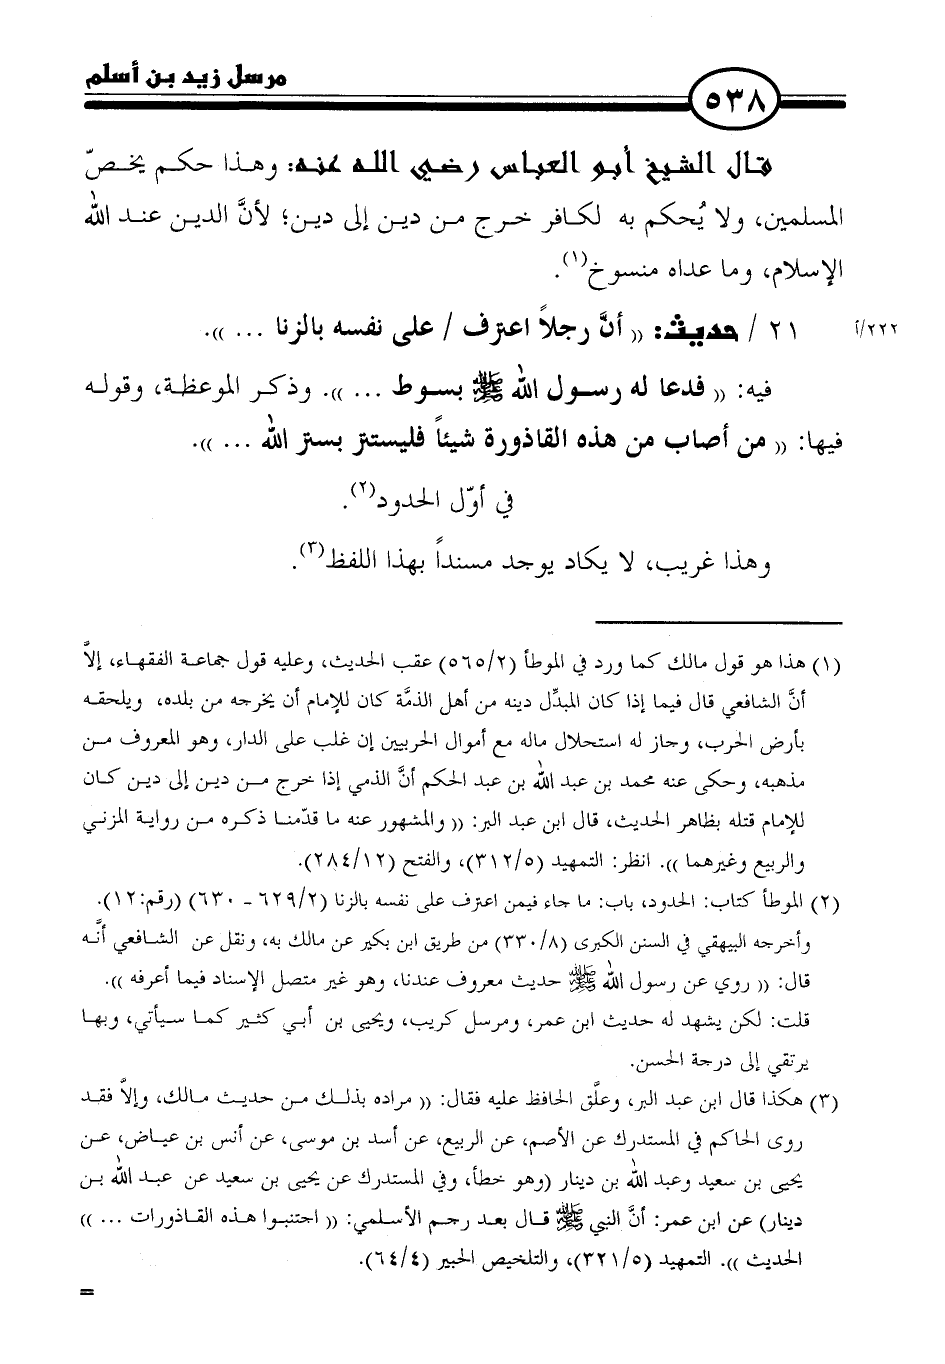 مرسل زيد بن أسلم
٥٣٨
قال الشيخ أبو العباس رضي الله عنه: وهذا حكم يخصّ
المسلمين، ولا يُحكم به لكافر خرج من دين إلى دين؛ لأنَّ الدين عند الله
الإسلام، وما عداه منسوخ(١).
٢٢٢/أ
٢١ / حديث: «أنَّ رجلاً اعترف / على نفسه بالزنا ... ».
فيه: «فدعا له رسول الله ﷺ بسوط ... ». وذكر الموعظة، وقوله
فيها: «من أصاب من هذه القاذورة شيئاً فليستتر بستر الله ... ».
في أوّل الحدود(٢).
وهذا غريب، لا يكاد يوجد مسنداً بهذا اللفظ(٣).
(١) هذا هو قول مالك كما ورد في الموطأ (٥٦٥/٢) عقب الحديث، وعليه قول جماعة الفقهاء، إلاَّ
أنَّ الشافعي قال فيما إذا كان المبدِّل دينه من أهل الذمَّة كان للإمام أن يخرجه من بلده، ويلحقه
بأرض الحرب، وجاز له استحلال ماله مع أموال الحربيين إن غلب على الدار، وهو المعروف من
مذهبه، وحكى عنه محمد بن عبد الله بن عبد الحكم أنَّ الذمي إذا خرج من دين إلى دين كان
للإمام قتله بظاهر الحديث، قال ابن عبد البر: «والمشهور عنه ما قدّمنا ذكره من رواية المزني
والربيع وغيرهما». انظر: التمهيد (٣١٢/٥)، والفتح (٢٨٤/١٢).
(٢) الموطأ كتاب: الحدود، باب: ما جاء فيمن اعترف على نفسه بالزنا (٦٢٩/٢ - ٦٣٠) (رقم:١٢).
وأخرجه البيهقي في السنن الكبرى (٣٣٠/٨) من طريق ابن بكير عن مالك به، ونقل عن الشافعي أنَّه
قال: «روي عن رسول الله ﷺ حديث معروف عندنا، وهو غير متصل الإسناد فيما أعرفه».
قلت: لكن يشهد له حديث ابن عمر، ومرسل كريب، ويحيى بن أبي كثير كما سيأتي، وبها
يرتقي إلى درجة الحسن.
(٣) هكذا قال ابن عبد البر، وعلَّق الحافظ عليه فقال: «مراده بذلك من حديث مالك، وإلاَّ فقد
روى الحاكم في المستدرك عن الأصم، عن الربيع، عن أسد بن موسى، عن أنس بن عياض، عن
يحيى بن سعيد وعبد الله بن دينار (وهو خطأ، وفي المستدرك عن يحيى بن سعيد عن عبد الله بن
دينار) عن ابن عمر: أنَّ النبي ﷺ قال بعد رجم الأسلمي: «اجتنبوا هذه القاذورات ... »
الحديث». التمهيد (٣٢١/٥)، والتلخيص الحبير (٦٤/٤).
=